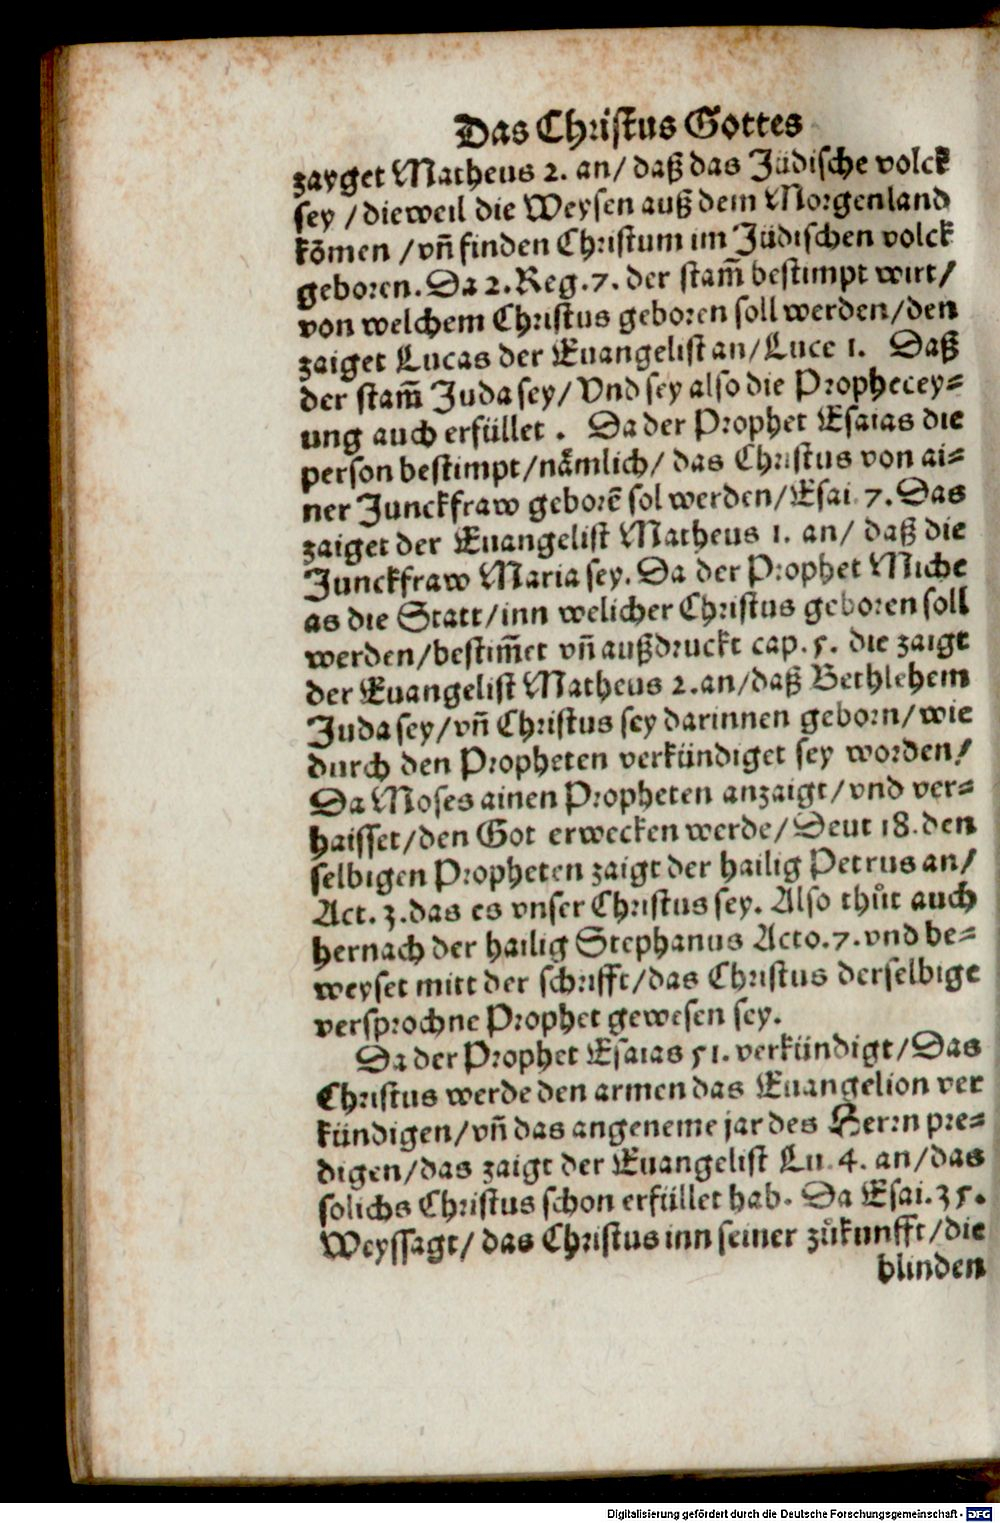 Das Christus Gottes
zayget Matheus 2. an/ daß das Jüdische volck
sey /dieweil die Weysen auß dem Morgenland
kōmen /vn̄ finden Christum im Jüdischen volck
geboren. Da 2. Reg. 7. der stam̄ bestimpt wirt/
von welchem Christus geboren soll werden/den
zaiget Lucas der Euangelist an/ Luce 1. Daß
der stam̄ Juda sey/ Vnd sey also die Prophecey⸗
ung auch erfüllet . Da der Prophet Esaias die
person bestimpt/nämlich/ das Christus von ai⸗
ner Junckfraw geborē sol werden/ Esai. 7. Das
zaiget der Euangelist Matheus 1. an/ daß die
Junckfraw Maria sey. Da der Prophet Miche
as die Statt/inn welicher Christus geboren soll
werden/bestim̄et vn̄ außdruckt cap. 5. die zaigt
der Euangelist Matheus 2.an/daß Bethlehem
Juda sey/vn̄ Christus sey darinnen geborn/wie
durch den Propheten verkündiget sey worden/
Da Moses ainen Propheten anzaigt/vnd ver⸗
haisset/den Got erwecken werde/Deut 18. den
selbigen Propheten zaigt der hailig Petrus an/
Act. 3. das es vnser Christus sey. Also thůt auch
hernach der hailig Stephanus Acto. 7. vnd be⸗
weyset mitt der schrifft/das Christus derselbige
versprochne Prophet gewesen sey.
Da der Prophet Esaias 51. verkündigt/Das
Christus werde den armen das Euangelion ver
kündigen/vn̄ das angeneme jar des Herrn pre⸗
digen/das zaigt der Euangelist Lu. 4. an/das
solichs Christus schon erfüllet hab. Da Esai. 35.
Weyssagt/ das Christus inn seiner zůkunfft/die
blinden
Digitalisierung gefördert durch die Deutsche Forschungsgemeinschaft - DFG